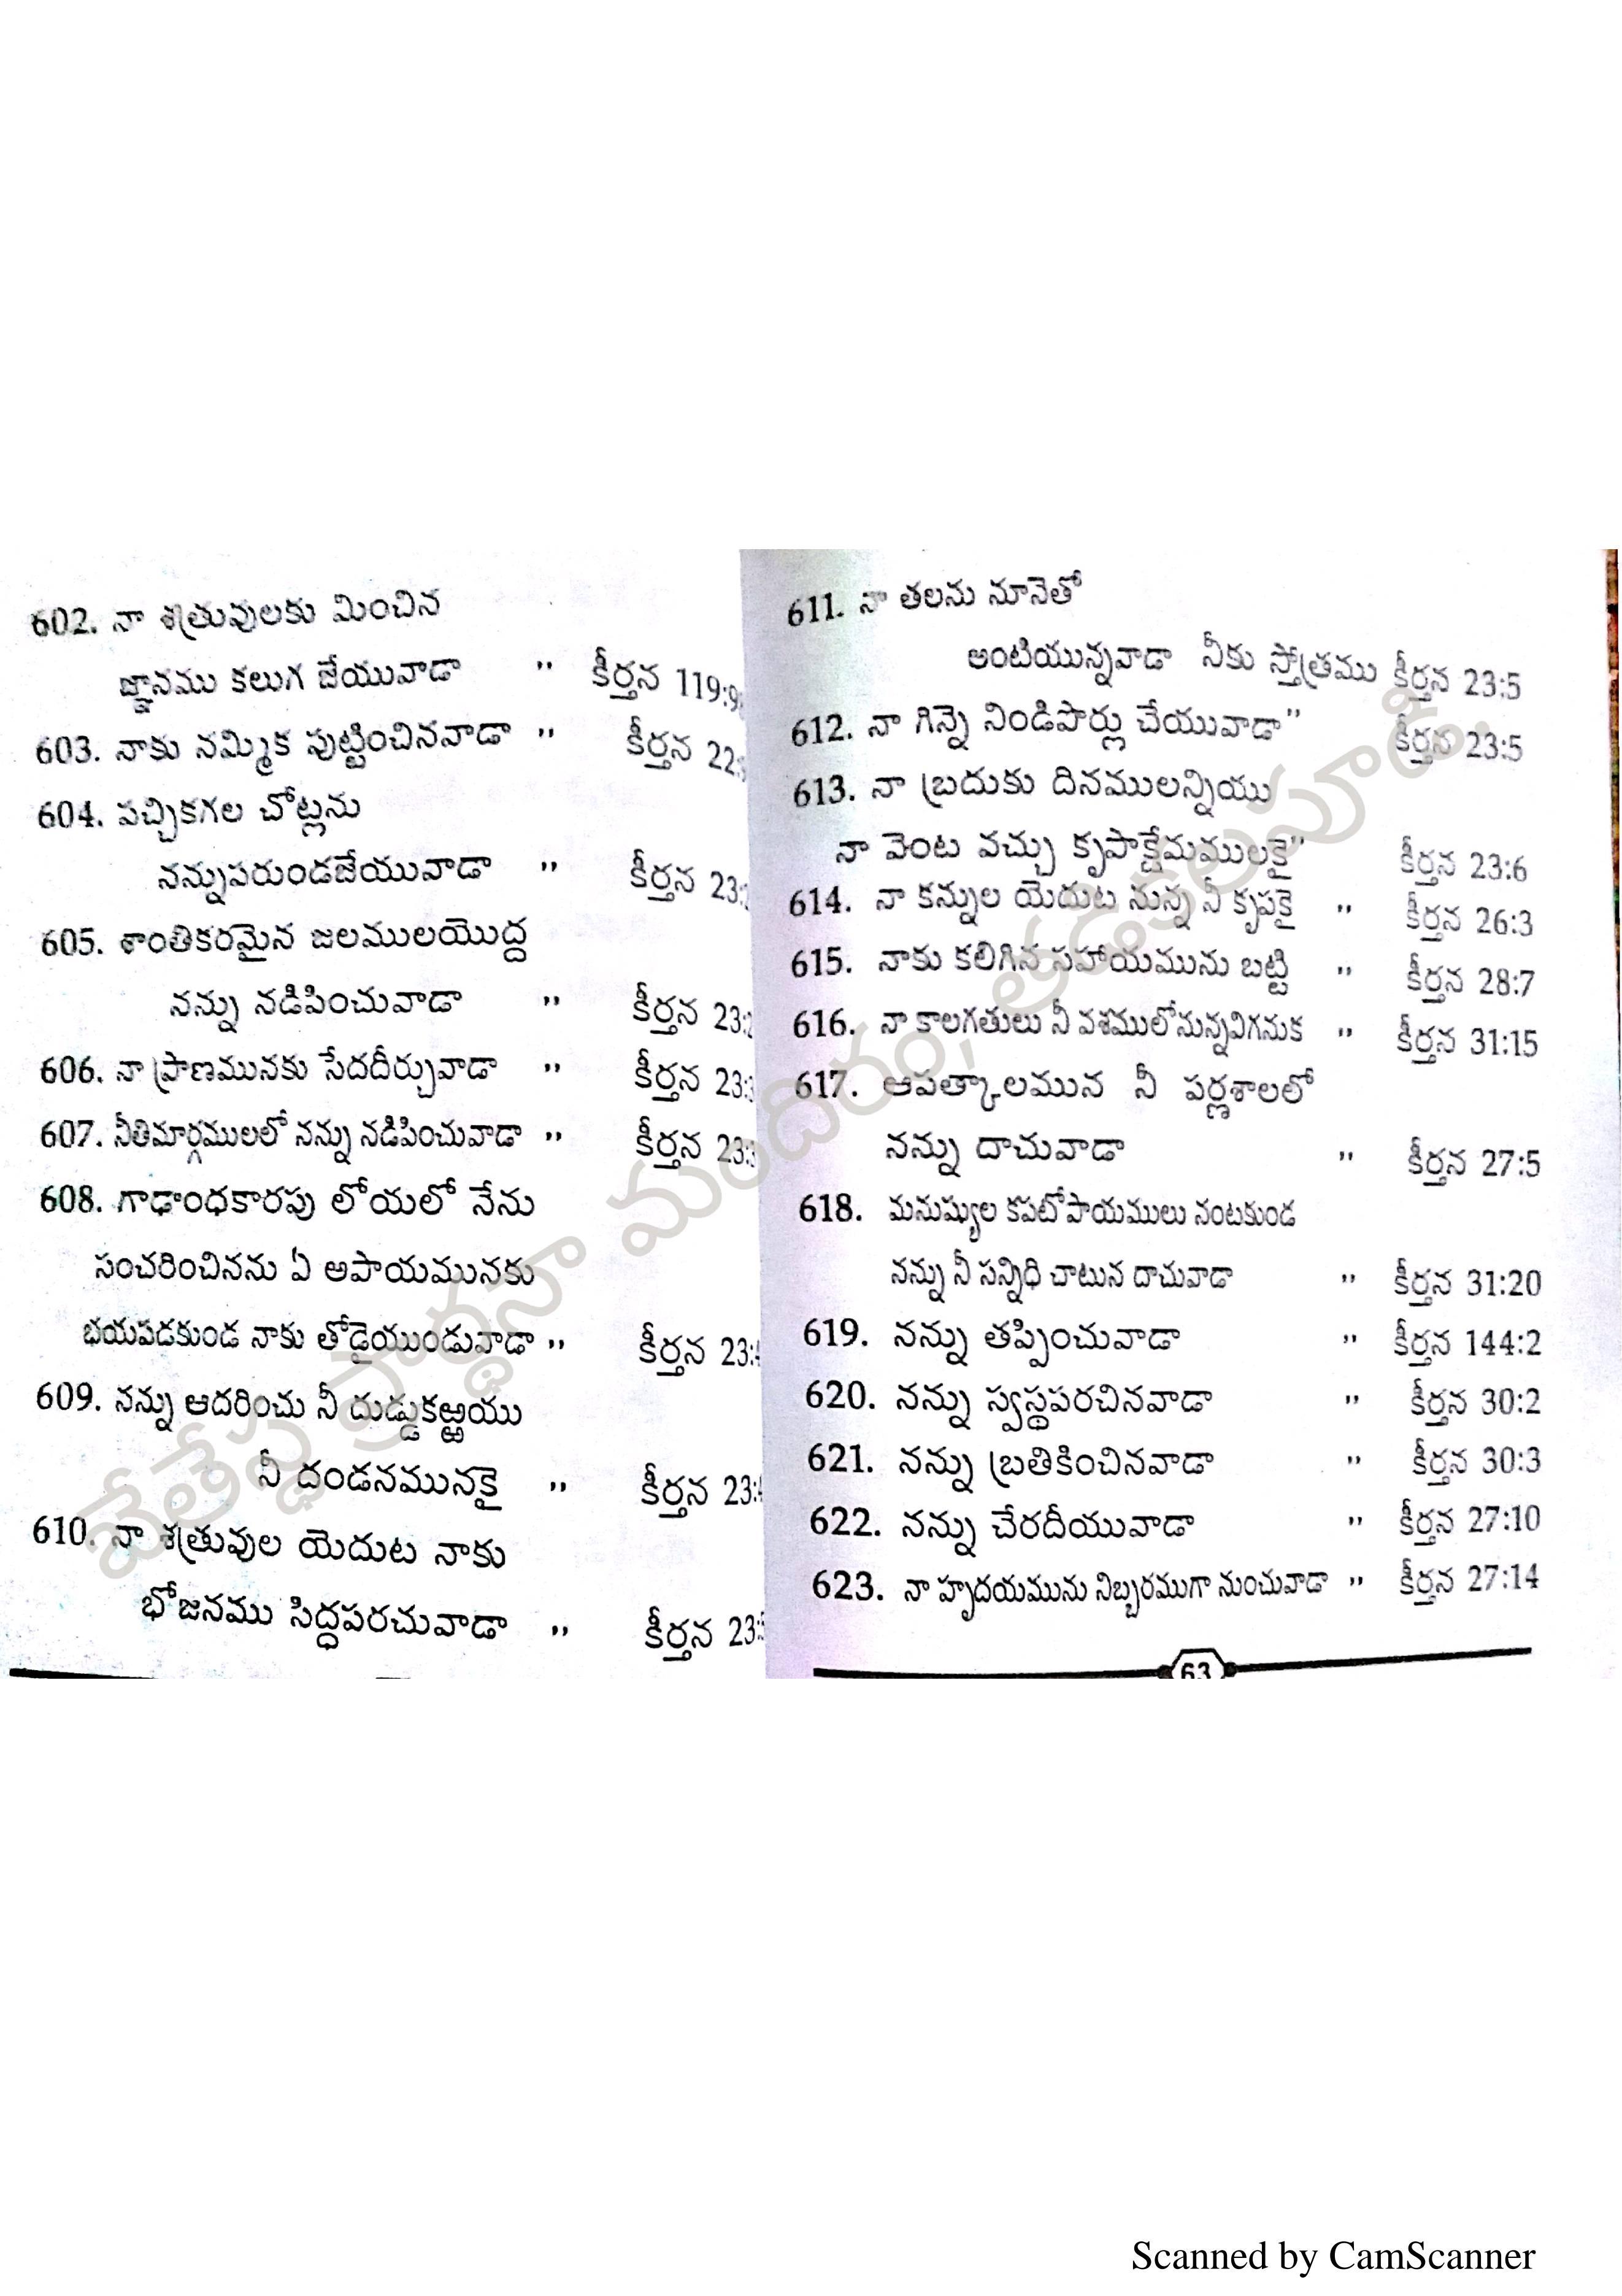 602. నా శత్రువులకు మించిన
జ్ఞానము కలుగ జేయువాడా ,, కీర్తన 119:9
603. నాకు నమ్మిక పుట్టించినవాడా ,, కీర్తన 22:
604. పచ్చికగల చోట్లను
నన్నుపరుండజేయువాడా ,, కీర్తన 23:2
605. శాంతికరమైన జలములయొద్ద
నన్ను నడిపించువాడా ,, కీర్తన 23:2
606. నా ప్రాణమునకు సేదదీర్చువాడా ,, కీర్తన 23:3
607. నీతిమార్గములలో నన్ను నడిపించువాడా ,, కీర్తన 23:3
608. గాఢాంధకారపు లోయలో నేను
సంచరించినను ఏ అపాయమునకు
భయపడకుండ నాకు తోడైయుండువాడా ,, కీర్తన 23:4
609. నన్ను ఆదరించు నీ దుడ్డుకఱ్ఱయు
నీ దండనమునకై ,, కీర్తన 23:4
610. నా శత్రువుల యెదుట నాకు
భోజనము సిద్ధపరచువాడా ,, కీర్తన 23:5
611. నా తలను నూనెతో
అంటియున్నవాడా నీకు స్తోత్రము కీర్తన 23:5
612. నా గిన్నె నిండిపొర్లు చేయువాడా ,, కీర్తన 23:5
613. నా బ్రదుకు దినములన్నియు
నా వెంట వచ్చు కృపాక్షేమములకై ,, కీర్తన 23:6
614. నా కన్నుల యెదుట నున్న నీ కృపకై ,, కీర్తన 26:3
615. నాకు కలిగిన సహాయమును బట్టి ,, కీర్తన 28:7
616. నా కాలగతులు నీ వశములోనున్నవిగనుక ,, కీర్తన 31:15
617. ఆపత్కాలమున నీ పర్ణశాలలో
నన్ను దాచువాడా ,, కీర్తన 27:5
618. మనుష్యుల కపటోపాయములు నంటకుండ
నన్ను నీ సన్నిధి చాటున దాచువాడా ,, కీర్తన 31:20
619. నన్ను తప్పించువాడా ,, కీర్తన 144:2
620. నన్ను స్వస్థపరచినవాడా ,, కీర్తన 30:2
621. నన్ను బ్రతికించినవాడా ,, కీర్తన 30:3
622. నన్ను చేరదీయువాడా ,, కీర్తన 27:10
623. నా హృదయమును నిబ్బరముగా నుంచువాడా ,, కీర్తన 27:14
63
బేతేస్థ ప్రార్థనా మందిరం,
Scanned by CamScanner